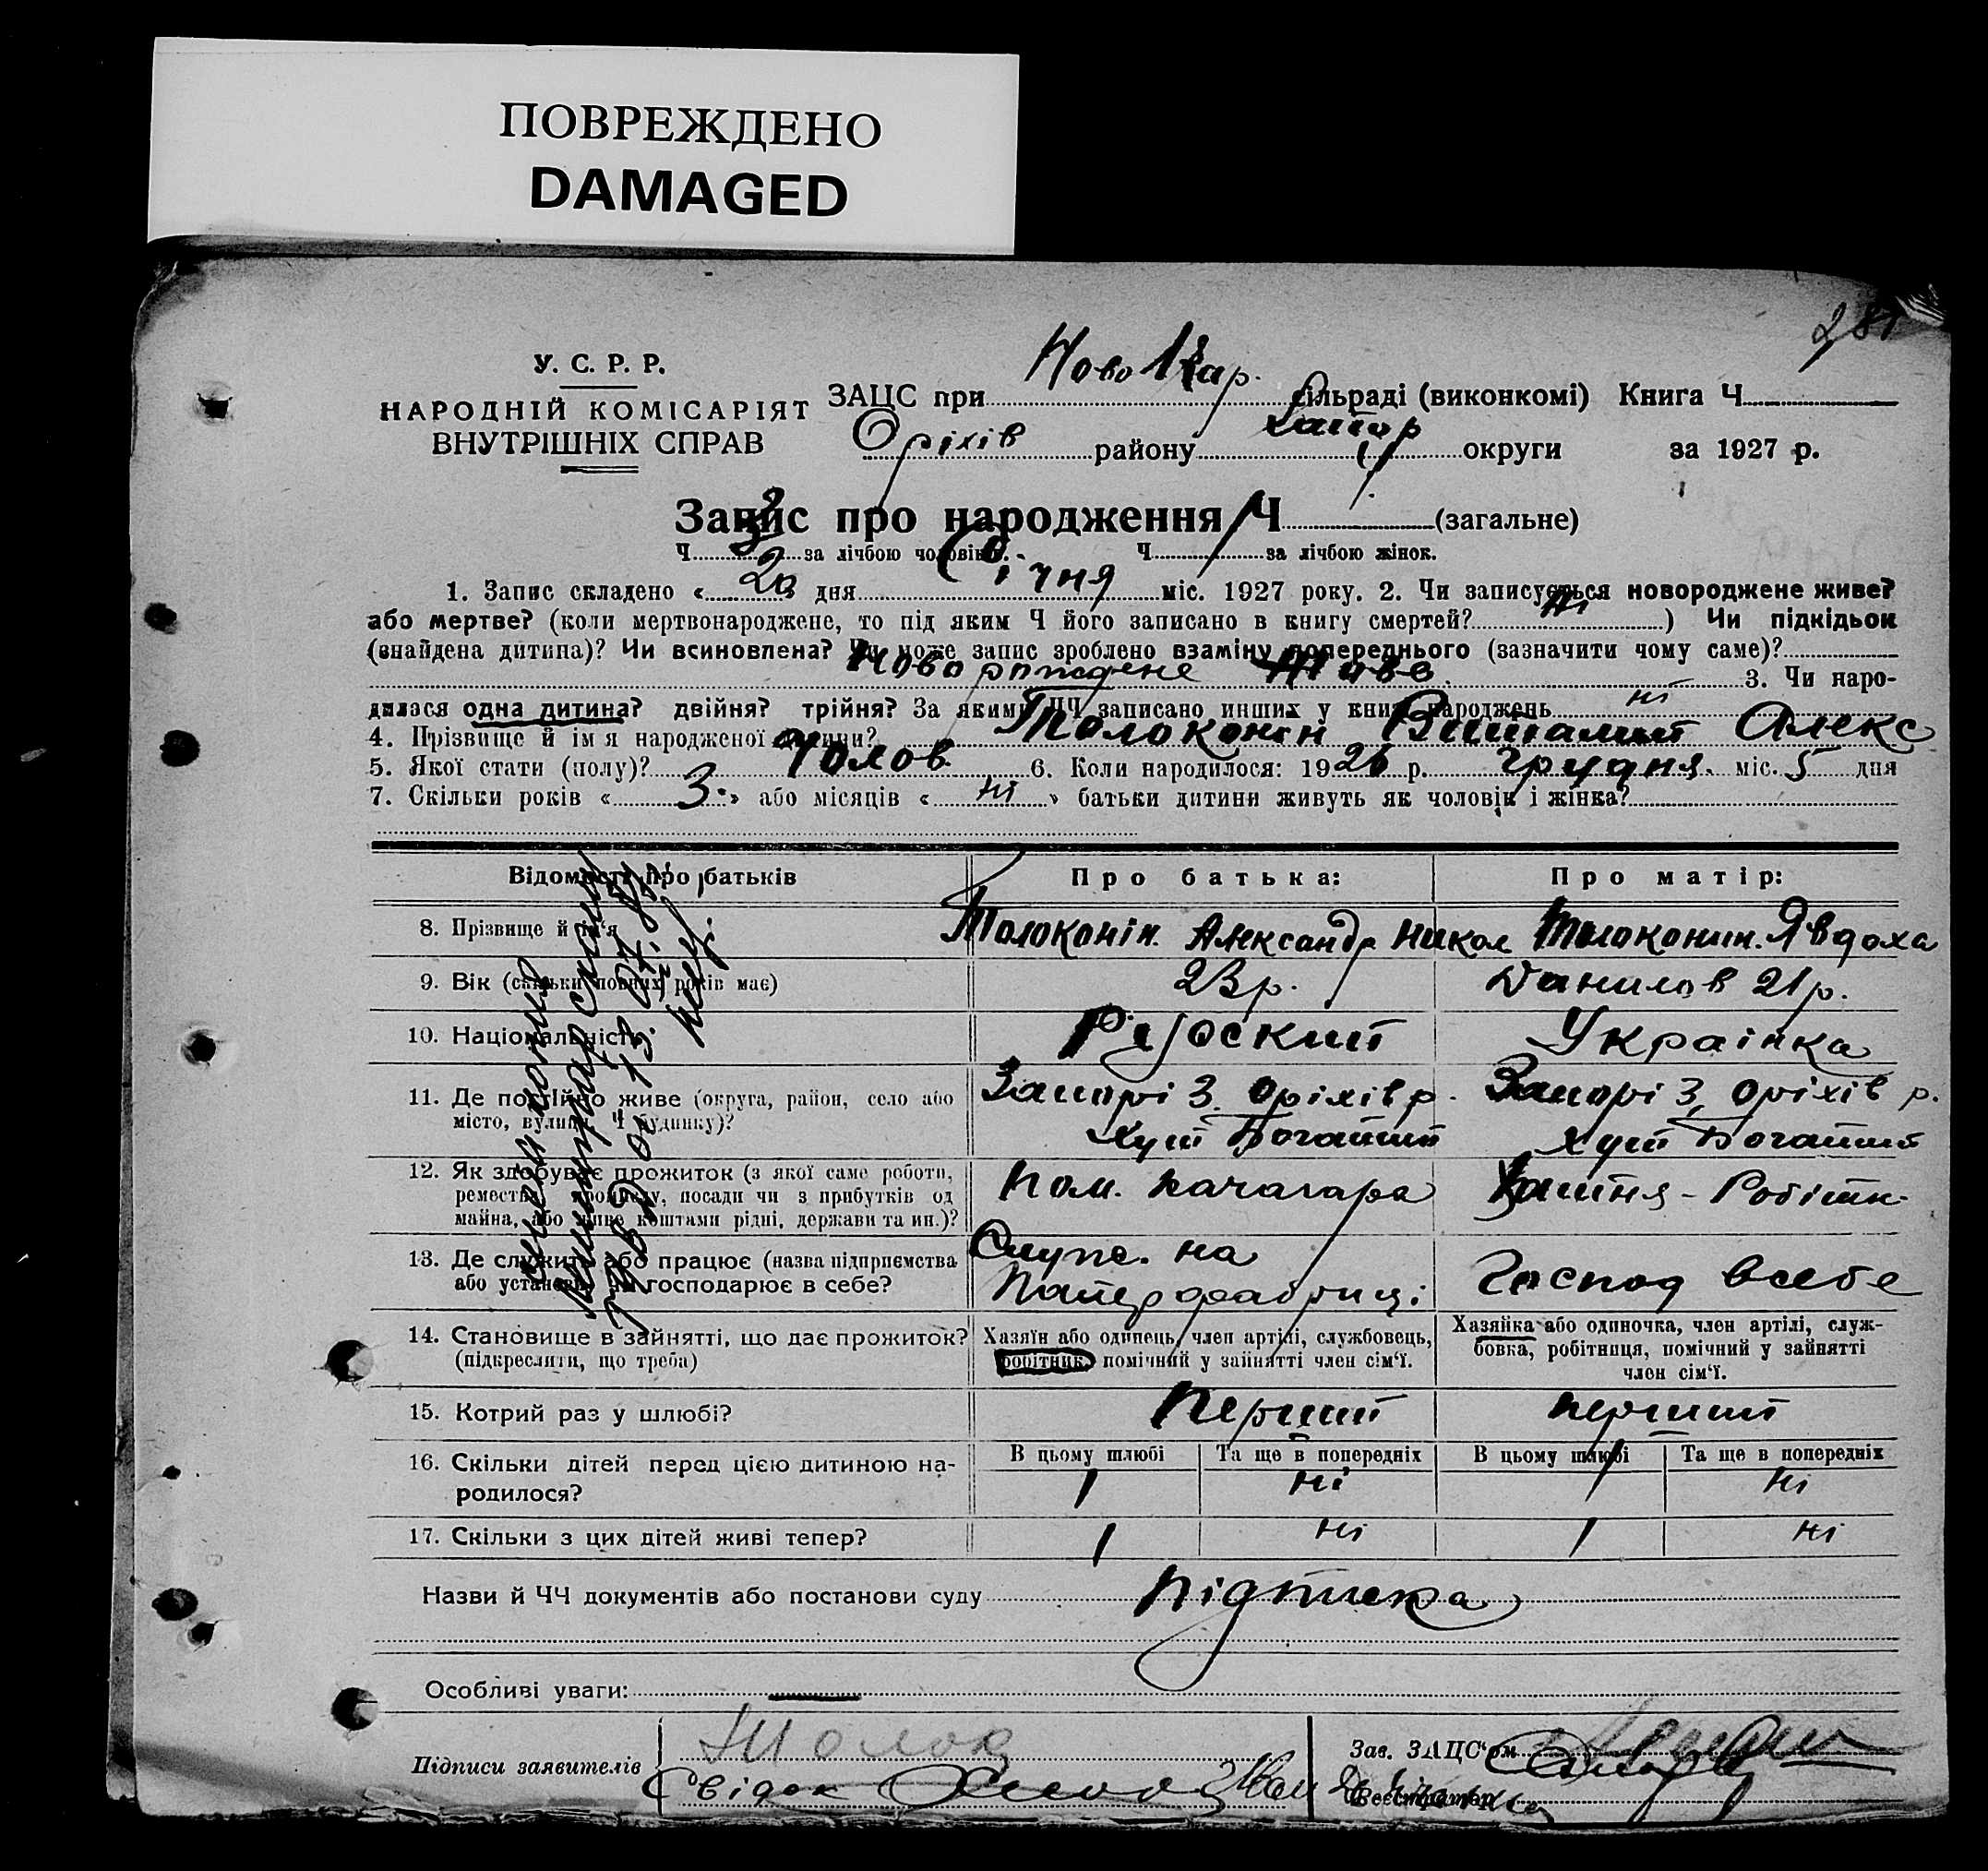 ПОВРЕЖДЕНО
DAMAGED
281
У. С. Р. Р.
НАРОДНІЙ КОМІСАРІЯТ
ВНУТРІШНІХ СПРАВ
ЗАЦС при Ново Кар. сільраді (виконкомі) Книга Ч
Оріхів району Запор округи за 1927 р.
Запис про народження Ч (загальне)
Ч 3 за лічбою чоловік. Ч за лічбою жінок.
1. Запис складено « 20 » дня Січня міс. 1927 року. 2. Чи записується новороджене живе?
або мертве? (коли мертвонароджене, то під яким Ч його записано в книгу смертей? ні ) Чи підкідьок
(знайдена дитина)? Чи всиновлена? Чи може запис зроблено взаміну попереднього (зазначити чому саме)?
Новорожdене живе. 3. Чи наро-
дилася одна дитина? двійня? трійня? За якими ЧЧ записано инших у книзі народжень ні
4. Прізвище й ім я народженої дитини? Толоконін Виталий Алекс
5. Якої стати (полу)? Чолов. 6. Коли народилося: 1926 р. Грудня. міс. 5 дня
7. Скільки років « 3. » або місяців « ні » батьки дитини живуть як чоловік і жінка?
Відомості про батьків Про батька: Про матір:
8. Прізвище й ім'я Толоконін. Александр Никол Толоконин. Явдоха
9. Вік (скільки повних років має) 23 р. Данилов 21 р.
10. Національність Руоский Українка
11. Де постійно живе (округа, район, село або Запорі З. Оріхів р. Запорі З, Оріхів р.
місто, вулиця, Ч будинку)? Хут Богатий хут Богатий
12. Як здобуває прожиток (з якої саме роботи, Пом. качагара Хатня - Робітн.
ремества, промислу, посади чи з прибутків од
майна, або живе коштами рідні, держави та ин.)?
13. Де служить або працює (назва підприємства Служе. на
або установи) чи господарює в себе? Папер фабриці Господ всебе
14. Становище в зайнятті, що дає прожиток? Хазяїн або одинець, член артілі, службовець, Хазяйка або одиночка, член артілі, служ-
(підкреслити, що треба) робітник, помічний у зайнятті член сім'ї. бовка, робітниця, помічний у зайнятті
член сім'ї.
15. Котрий раз у шлюбі? Перший перший
16. Скільки дітей перед цією дитиною на- В цьому шлюбі Та ще в попередніх В цьому шлюбі Та ще в попередніх
родилося? 1 ні 1 ні
17. Скільки з цих дітей живі тепер? 1 ні 1 ні
Назви й ЧЧ документів або постанови суду підписка
Особливі уваги: —
Підписи заявителів Толок Зав. ЗАЦС'ом
Свідок Реєстратор